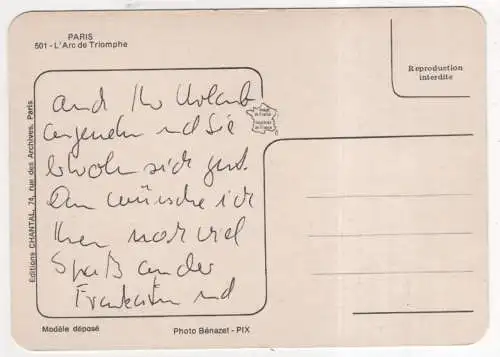 PARIS
501 - L'Arc de Triomphe
Reproduction
interdite
Editions CHANTAL, 74, rue des Archives, Paris
und Ihr Urlaub
angenehm und Sie
sich gut.
wünsche ich
Ihnen noch viel
Spaß an der
und
Modèle déposé
Photo Bénazet - PIX